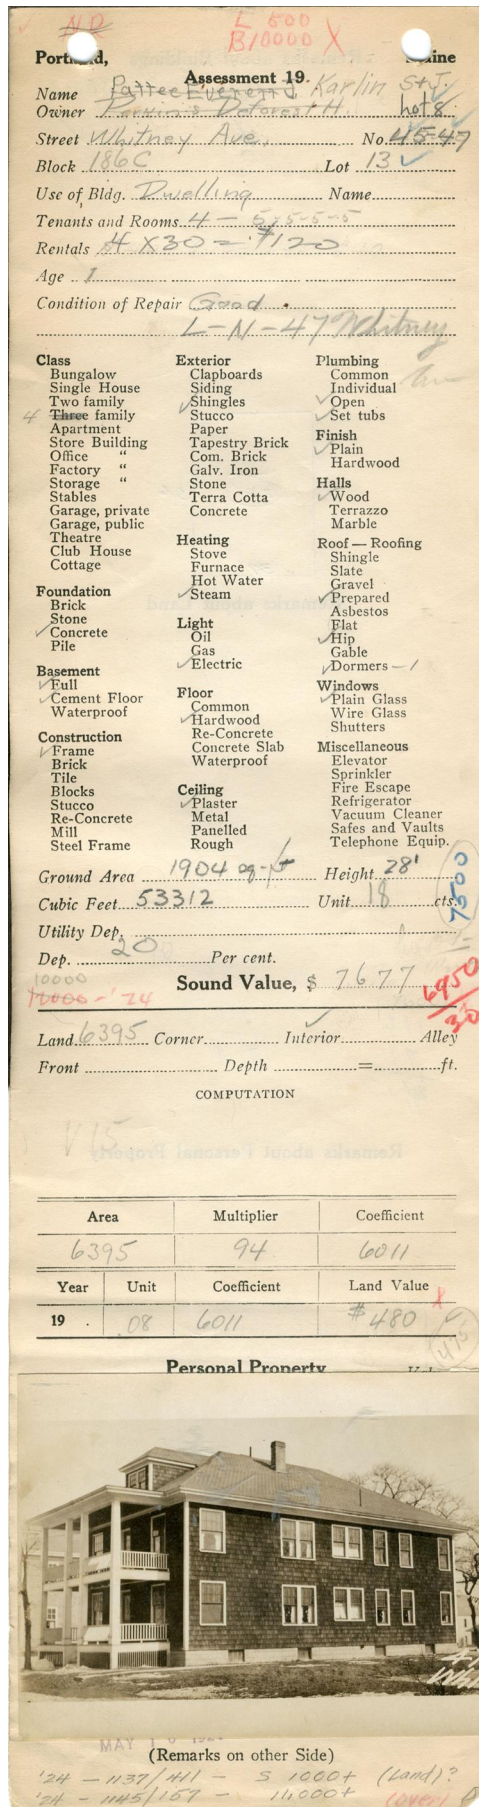 ND
L 500
B10000 X
Portland, Maine
Assessment 19
Name Pattee Everett J. Karlin S+J.
Owner Parkin's Deforest H. Lot 8
Street Whitney Ave. No. 45-47
Block 186C Lot 13
Use of Bldg. Dwelling Name
Tenants and Rooms 4 - 5-5-5-5
Rentals 4 X 30 = $120
Age 1
Condition of Repair Good
L-N-47 Whitney Ave
Class
Bungalow
Single House
Two family
4 Three family
Apartment
Store Building
Office "
Factory "
Storage "
Stables
Garage, private
Garage, public
Theatre
Club House
Cottage
Foundation
Brick
Stone
Concrete
Pile
Basement
Full
Cement Floor
Waterproof
Construction
Frame
Brick
Tile
Blocks
Stucco
Re-Concrete
Mill
Steel Frame
Exterior
Clapboards
Siding
Shingles
Stucco
Paper
Tapestry Brick
Com. Brick
Galv. Iron
Stone
Terra Cotta
Concrete
Heating
Stove
Furnace
Hot Water
Steam
Light
Oil
Gas
Electric
Floor
Common
Hardwood
Re-Concrete
Concrete Slab
Waterproof
Ceiling
Plaster
Metal
Panelled
Rough
Plumbing
Common
Individual
Open
Set tubs
Finish
Plain
Hardwood
Halls
Wood
Terrazzo
Marble
Roof — Roofing
Shingle
Slate
Gravel
Prepared
Asbestos
Flat
Hip
Gable
Dormers - 1
Windows
Plain Glass
Wire Glass
Shutters
Miscellaneous
Elevator
Sprinkler
Fire Escape
Refrigerator
Vacuum Cleaner
Safes and Vaults
Telephone Equip.
Ground Area 1904 sq. ft Height 28'
Cubic Feet 53312 Unit 18 cts.
7500
Utility Dep.
Dep. 20 Per cent.
10000
Sound Value, $ 7677
11000 - '24
6950
30
Land 6395 Corner Interior Alley
Front Depth = ft.
COMPUTATION
V 15
Area Multiplier Coefficient
6395 94 6011
Year Unit Coefficient Land Value
19 . .08 6011 $480
475
Personal Property
(Remarks on other Side)
'24 - 1137/411 - S 1000+ (Land)?
'24 - 1145/157 - 11,000+ (over)